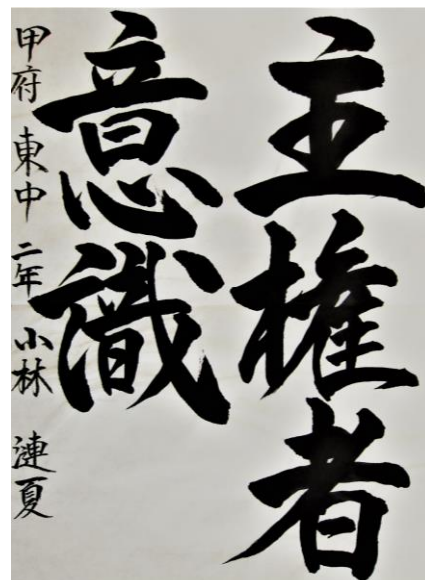 主権者
意識
甲府 東中 二年 小林 漣夏